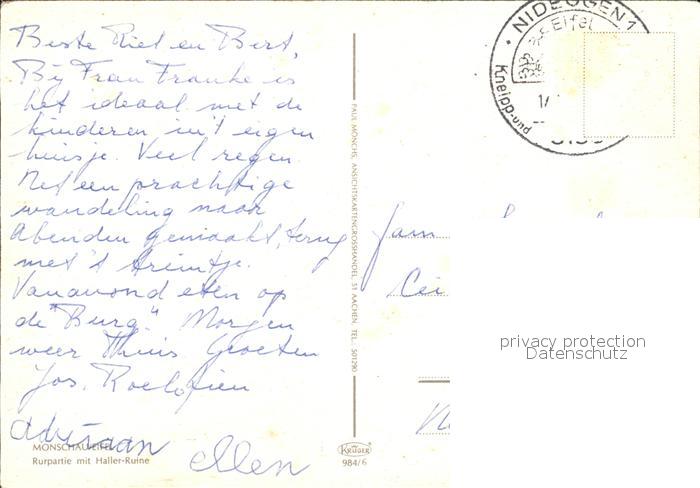 Beste Riet en Bert,
Bij Frau Franke is
het ideaal met de
kinderen in't eigen
huisje. Veel regen.
Net een prachtige
wandeling naar
Abenden gemaakt, terug
met 't treintje.
Vanavond eten op
de "Burg". Morgen
weer thuis. Groeten
Jos. Roelofien
Adriaan
Ellen
MONSCHAU/EIFEL
Rurpartie mit Haller-Ruine
PAUL MÖNCHS, ANSICHTSKARTENGROSSHANDEL, 51 AACHEN, TEL.: 501290
KRÜGER
984/6
NIDEGGEN 1
Eifel
Kneipp-und
Fam
privacy protection
Datenschutz